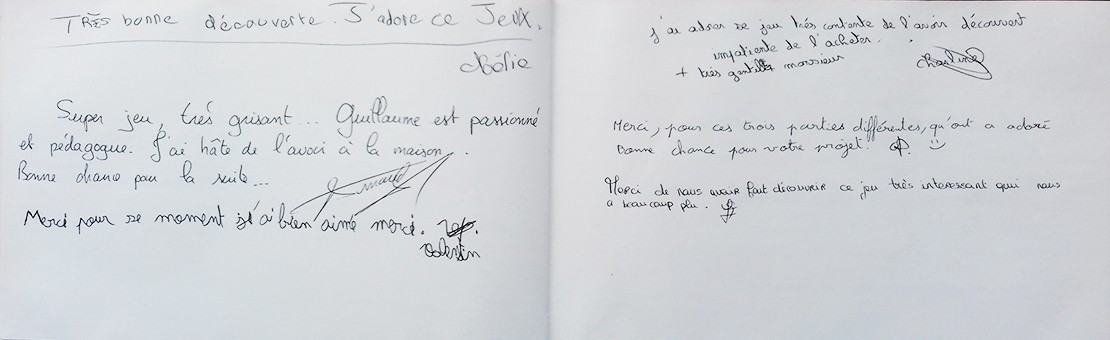 TRÈS bonne découverte. J'adore ce JEUX.
Super jeu, très grisant... Guillaume est passionné
et pédagogue. J'ai hâte de l'avoir à la maison.
Bonne chance pour la suite...
Merci pour se moment j'ai bien aimé merci.
Valentin
j'ai adorer se jeu très contente de l'avoir découvert
impatiente de l'acheter.
+ très gentill monsieur
Charline
Merci, pour ces trois parties différentes, qu'ont a adoré
Bonne chance pour votre projet!
Merci de nous avoir fait découvrir ce jeu très interessant qui nous
a beaucoup plu.